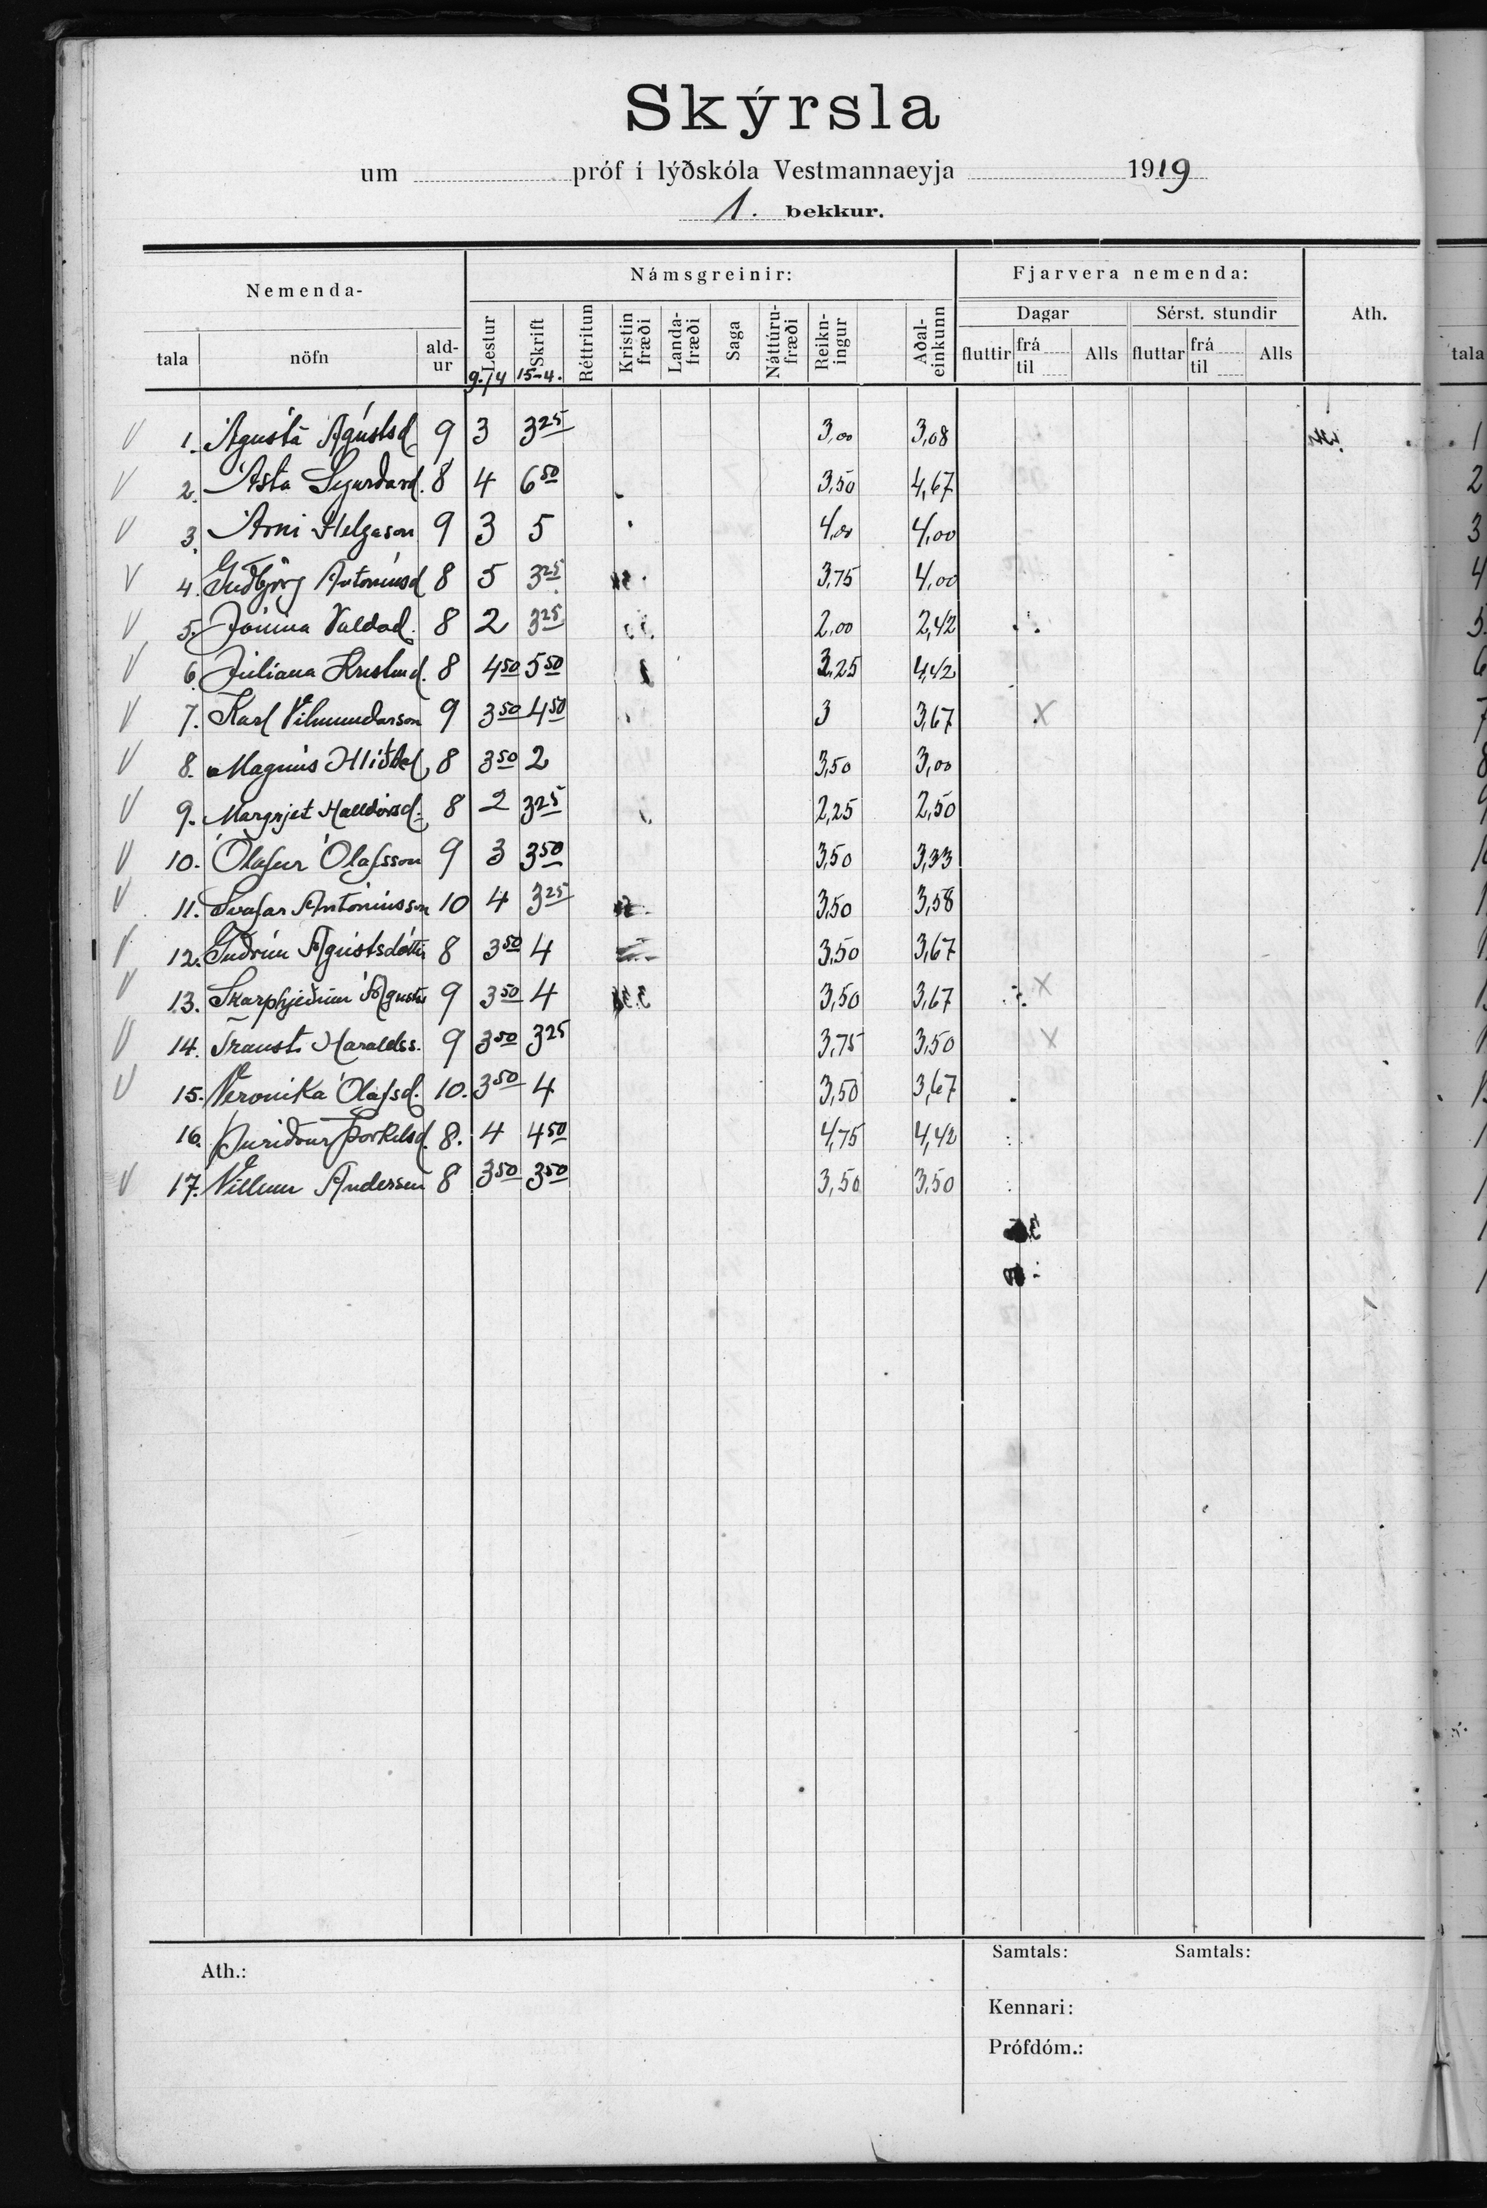 Skýrsla
um próf í lýðskóla Vestmannaeyja 1919
1. bekkur.
Nemenda- Námsgreinir: Fjarvera nemenda: Ath.
Dagar Sérst. stundir
tala nöfn ald-ur Lestur Skrift Réttritun Kristin fræði Landa-fræði Saga Náttúru-fræði Reikn-ingur Aðal-einkunn fluttir frá til Alls fluttar frá til Alls tala
9-/4 15-4.
V 1. Ágústa Ágústsd 9 3 3 25 3,00 3,08 1
V 2. Ásta Sigurðard. 8 4 6 50 3,50 4,67 2
V 3. Árni Helgason 9 3 5 4,00 4,00 3
V 4. Guðbjörg Antoníusd 8 5 3 25 3,75 4,00 4
V 5. Jónína Valdad. 8 2 3 25 2,00 2,42 5
V 6. Júlíana Kristmd. 8 4 50 5 50 3,25 4,42 6
V 7. Karl Vilmundarson 9 3 50 4 50 3 3,67 X 7
V 8. Magnús 8 3 50 2 3,50 3,00 8
V 9. Margrjet Halldórsd. 8 2 3 25 2,25 2,50 9
V 10. Ólafur Ólafsson 9 3 3 50 3,50 3,33
V 11. Svafar Antoníusson 10 4 3 25 3,50 3,58
V 12. Guðrún Ágústsdóttir 8 3 50 4 3,50 3,67
V 13. Skarphjeðinn 9 3 50 4 3,50 3,67 X
V 14. Trausti Haraldss. 9 3 50 3 25 3,75 3,50 X
V 15. Veronika Ólafsd. 10. 3 50 4 3,50 3,67
16. Þuríður Þorkelsd. 8. 4 4 50 4,75 4,42
V 17. Villum Andersen 8 3 50 3 50 3,50 3,50
Ath.: Samtals: Samtals:
Kennari:
Prófdóm.: